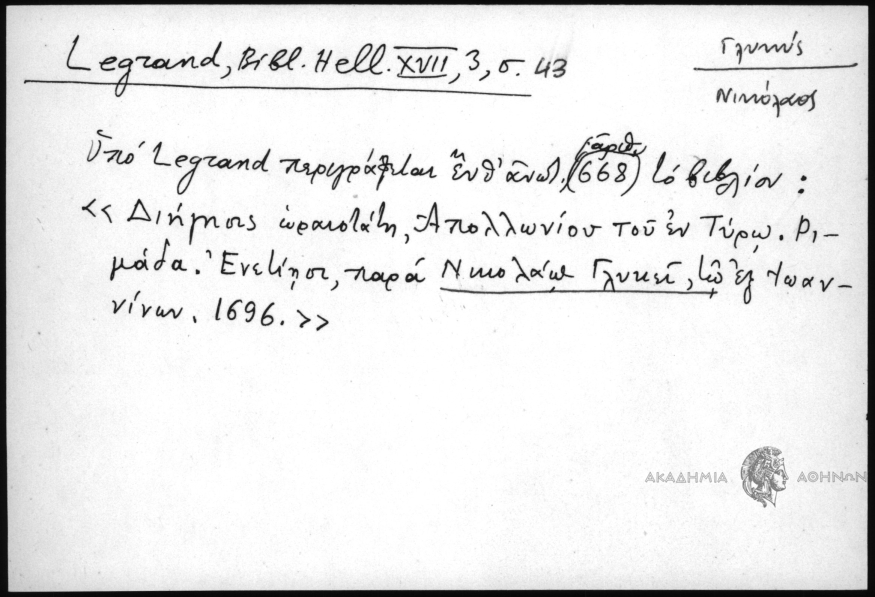 Legrand, Bibl. Hell. XVII, 3, σ. 43
Γλυκύς
Νικόλαος
Ὑπό Legrand περιγράφεται ἔνθ' ἀνωτ. (ἀριθ. 668) τό βιβλίον :
<< Διήγησις ὡραιοτάτη, Ἀπολλωνίου τοῦ ἐν Τύρῳ. Ρι-
μάδα. Ἐνετίησι, παρά Νικολάῳ Γλυκεῖ, τῷ ἐξ Ἰωαν-
νίνων. 1696. >>
ΑΚΑΔΗΜΙΑ ΑΘΗΝΩΝ